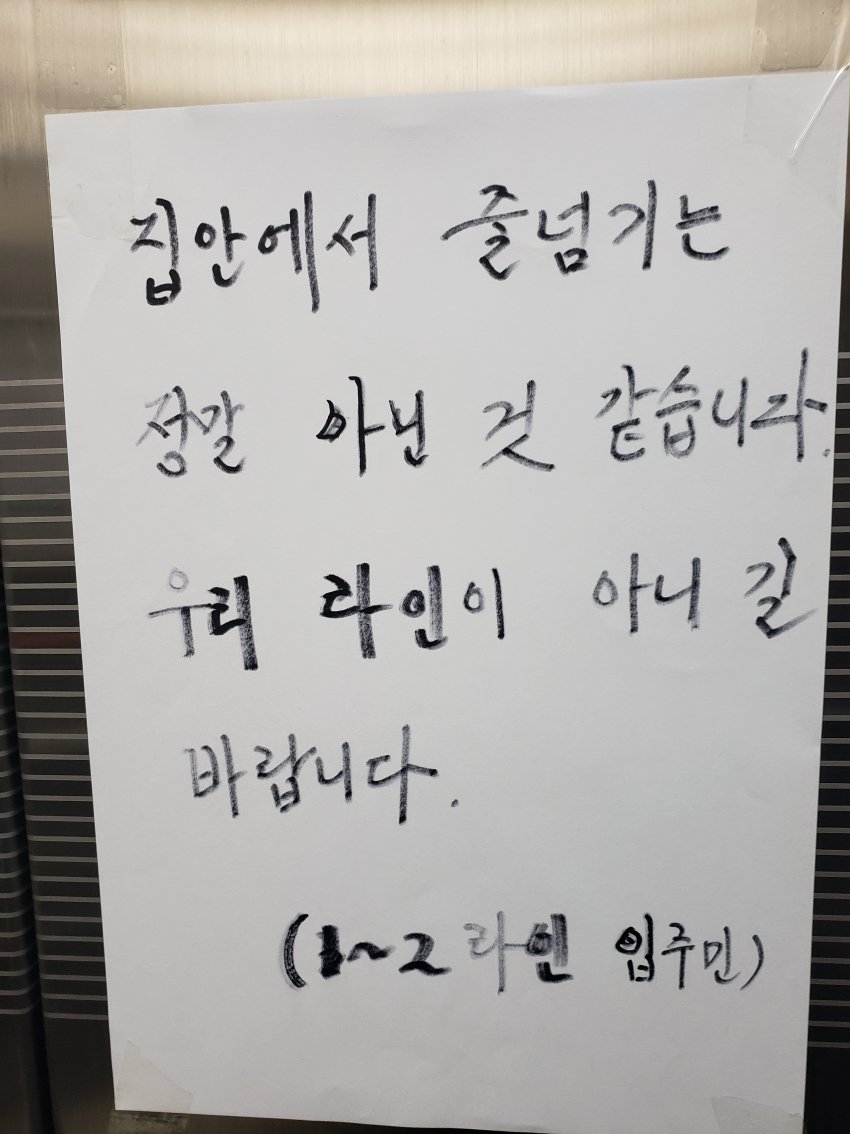 집안에서 줄넘기는
정말 아닌 것 같습니다.
우리 라인이 아니길
바랍니다.
(1~2라인 입주민)